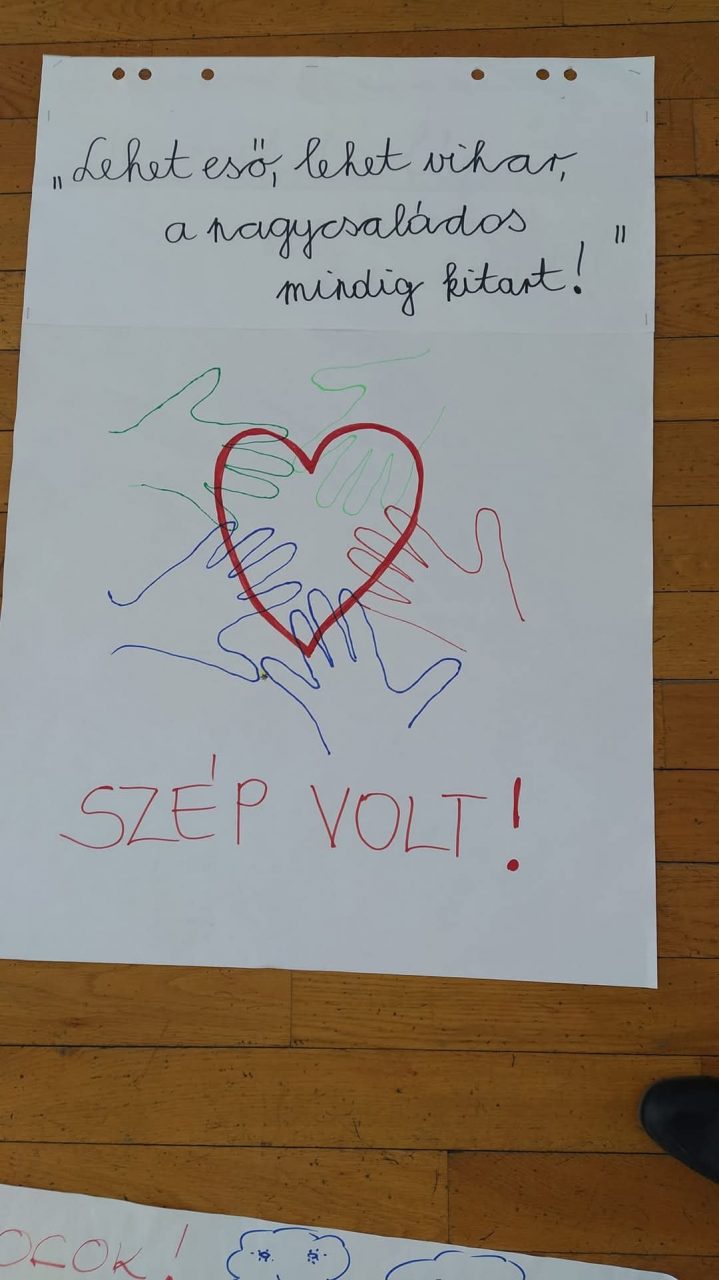 „Lehet eső, lehet vihar,
a nagycsaládos
mindig kitart!"
SZÉP VOLT!